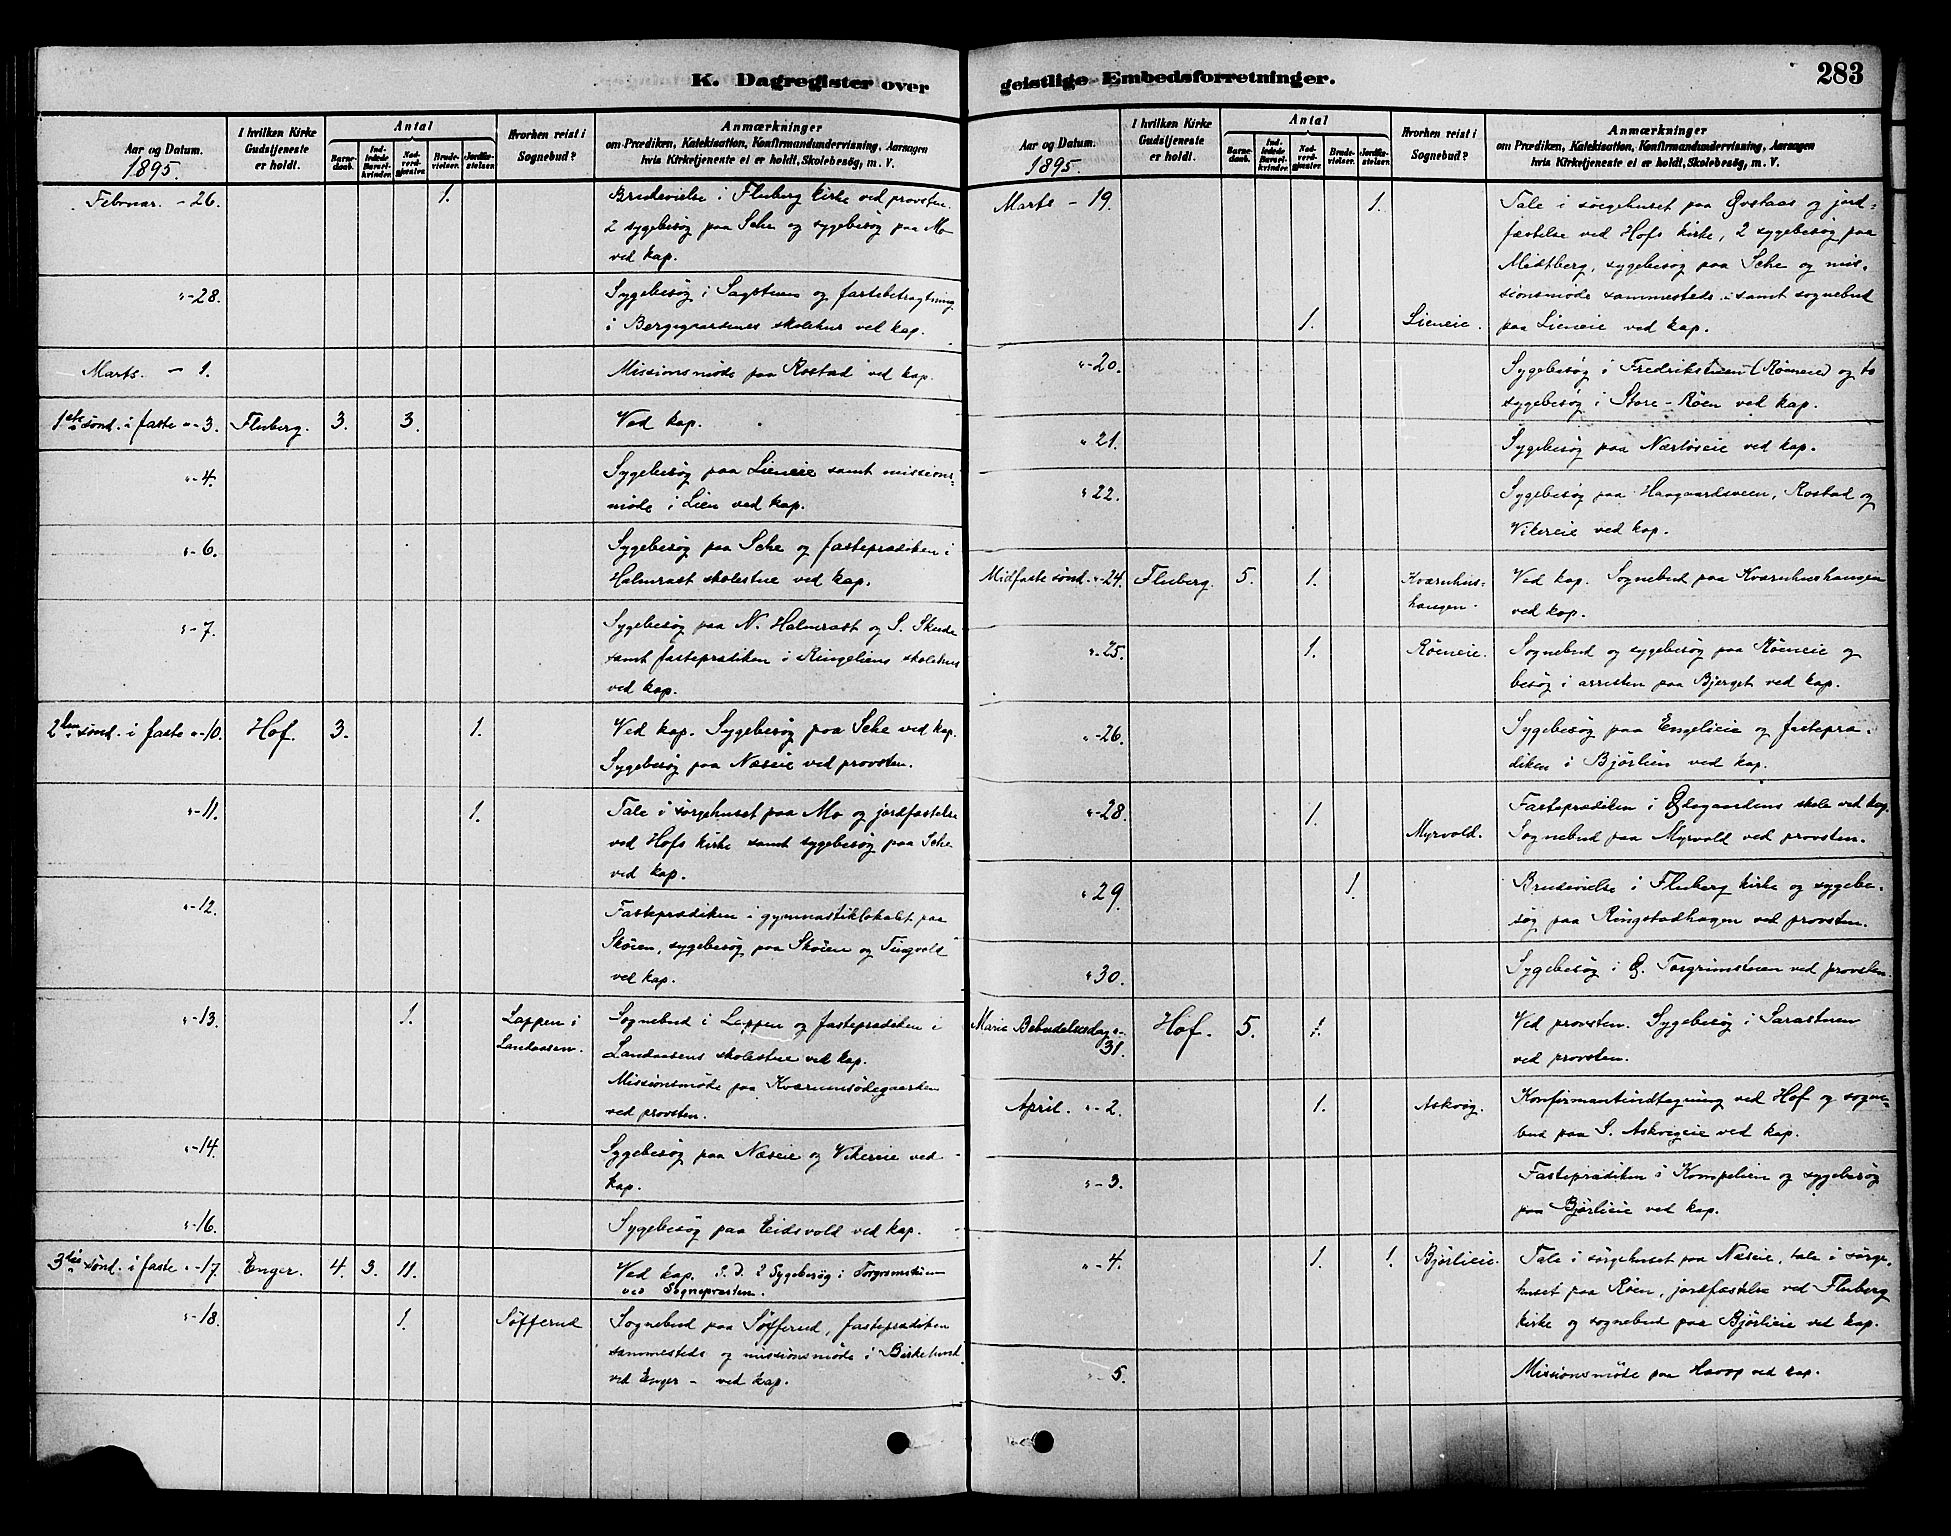 K. Dagregister over
Aar og Datum.
1895.
I hvilken Kirke Gudstjeneste er holdt.
Antal
Barnedaab.
Indledede Barselkvinder.
Nadverdgjæster.
Brudevielser.
Jordfæstelser.
Hvorhen reist i Sognebud?
Anmærkninger
om Prædiken, Katekisation, Konfirmandundervisning, Aarsagen
hvis Kirketjeneste ei er holdt, Skolebesøg, m. V.
Februar. - 26. 1. Brudevielse i Fluberg kirke ved provsten.
2 sygebesøg paa Sche og sygebesøg paa Mo
ved kap.
"-28. Sygebesøg i Sagstuen og fastebetragtning
i Berggaardenes skolehus ved kap.
Marts. - 1. Missionsmøde paa Rostad ved kap.
1ste sønd. i faste "-3. Fluberg. 3. 3. Ved kap.
"-4. Sygebesøg paa Lieneie samt missions-
møde i Lien ved kap.
"-6. Sygebesøg paa Sche og fasteprædiken i
Halmrast skolestue ved kap.
"-7. Sygebesøg paa N. Halmrast og S. Skute
samt fasteprædiken i Ringeliens skolehus
ved kap.
2den sønd. i faste "-10. Hof. 3. 1. Ved kap. Sygebesøg paa Sche ved kap.
Sygebesøg paa Næseie ved provsten.
"-11. 1. Tale i sørgehuset paa Mo og jordfæstelse
ved Hofs kirke samt sygebesøg paa Sche
ved kap.
"-12. Fasteprædiken i gymnastiklokalet paa
Skøien, sygebesøg paa Skøien og Tingvold
ved kap.
"-13. 1. Lappen i Sognebud i Lappen og fasteprædiken i
Landaasen. Landaasens skolestue ved kap.
Missionsmøde paa Kværumsødegaarden
ved provsten.
"-14. Sygebesøg paa Næseie og Vikereie ved
kap.
"-16. Sygebesøg paa Eidsvold ved kap.
3die sønd. i faste "-17. Enger. 4. 3. 11. Ved kap. S. D. 2 Sygebesøg i Torgrimstuen
ved Sognepræsten.
"-18. 1. Søfferud Sognebud paa Søfferud, fasteprædiken
sammesteds og missionsmøde i Birkelund
ved Enger - ved kap.
geistlige Embedsforretninger.
283
Aar og Datum.
1895.
I hvilken Kirke Gudstjeneste er holdt.
Antal
Barnedaab.
Indledede Barselkvinder.
Nadverdgjæster.
Brudevielser.
Jordfæstelser.
Hvorhen reist i Sognebud?
Anmærkninger
om Prædiken, Katekisation, Konfirmandundervisning, Aarsagen
hvis Kirketjeneste ei er holdt, Skolebesøg, m. V.
Marts - 19. 1. Tale i sørgehuset paa Øvstaas og jord-
fæstelse ved Hofs kirke, 2 sygebesøg paa
Midtberg, sygebesøg paa Sche og mis-
sionsmøde sammesteds samt sognebud
1. Lieneie. paa Lieneie ved kap.
"-20. Sygebesøg i Fredrikstuen (Røeneie) og to
sygebesøg i Store-Røen ved kap.
"21. Sygebesøg paa Nærløseie ved kap.
"22. Sygebesøg paa Haagaardsveen, Rostad og
Vikereie ved kap.
Midfaste sønd. "-24. Fluberg. 5. 1. Kværnhus- Ved kap. Sognebud paa Kværnhushaugen
haugen. ved kap.
"-25. 1. Røeneie. Sognebud og sygebesøg paa Røeneie og
besøg i arresten paa Bjerget ved kap.
"-26. Sygebesøg paa Engelieie og fastepræ-
diken i Bjørlien ved kap.
"-28. 1. Fasteprædiken i Ødegaardens skole ved kap.
Myrvold. Sognebud paa Myrvold ved provsten.
"29. 1. Brudevielse i Fluberg kirke og sygebe-
søg paa Ringstadhagen ved provsten.
"30. Sygebesøg i Ø. Torgrimstuen ved provsten.
Mariæ Bebudelsesdag "-31. Hof. 5. 1. Ved provsten. Sygebesøg i Sarastuen
ved provsten.
April. "-2. 1. Askvig. Konfirmantindtagning ved Hof og sogne-
bud paa S. Askvigeie ved kap.
"-3. Fasteprædiken i Kompelien og sygebesøg
paa Bjørlieie ved kap.
"-4. 1. 1. Bjørlieie. Tale i sørgehuset paa Næseie, tale i sørge-
huset paa Røen, jordfæstelse ved Fluberg
kirke og sognebud paa Bjørlieie ved kap.
"-5. Missionsmøde paa Havop ved kap.